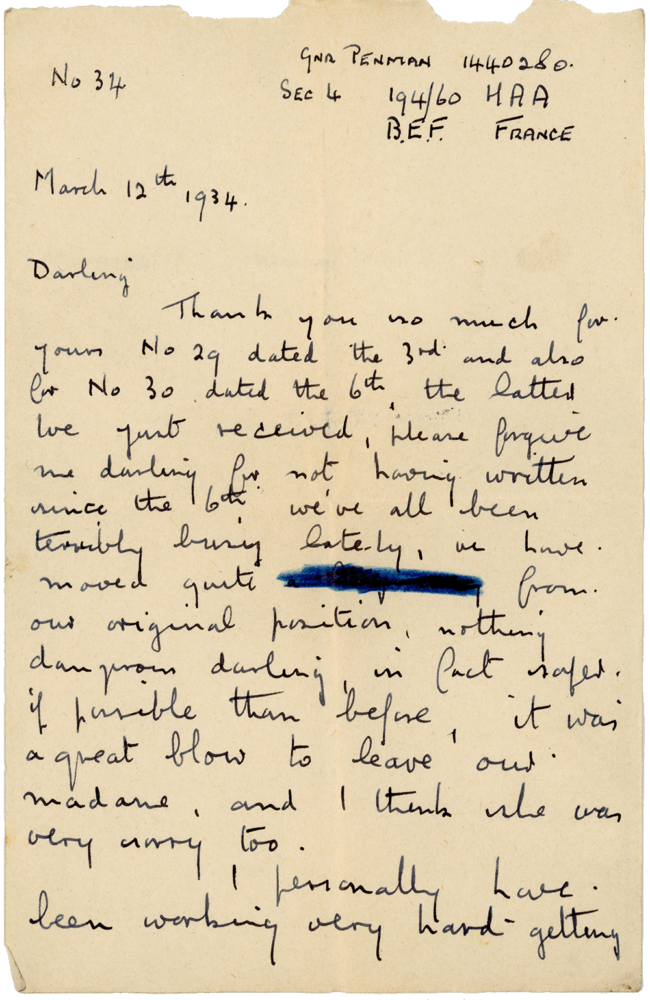 No 34
GNR PENMAN 1440280.
SEC 4 194/60 HAA
B.E.F. FRANCE
March 12th 1934.
Darling
Thank you so much for
yours No 29 dated the 3rd and also
for No 30 dated the 6th, the latter
I've just received, please forgive
me darling for not having written
since the 6th we've all been
terribly busy lately, we have
moved quite from
our original position, nothing
dangerous darling, in fact safer
if possible than before, it was
a great blow to leave our
madame, and I think she was
very sorry too.
I personally have
been working very hard getting